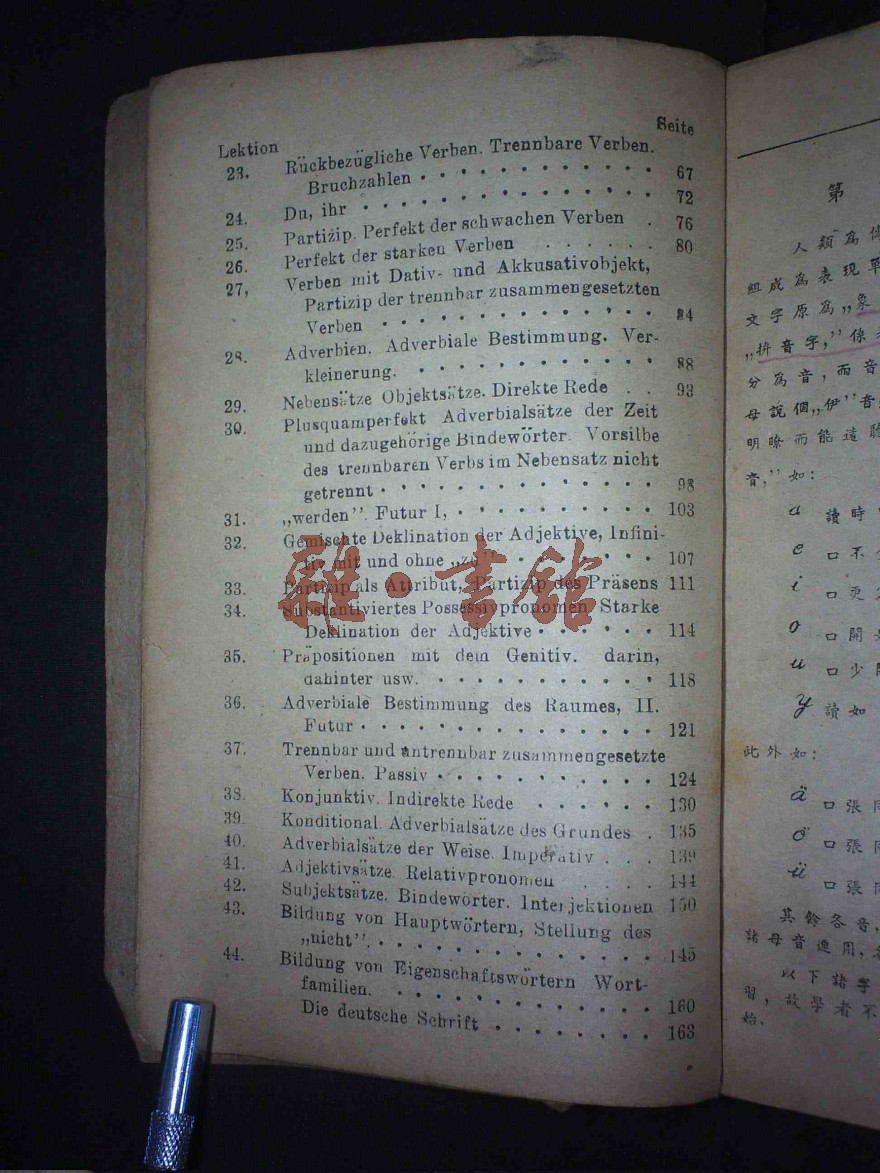 Lektion Seite
23. Rückbezügliche Verben. Trennbare Verben.
Bruchzahlen 67
24. Du, ihr 72
25. Partizip. Perfekt der schwachen Verben 76
26. Perfekt der starken Verben 80
27, Verben mit Dativ- und Akkusativobjekt,
Partizip der trennbar zusammengesetzten
Verben 84
28. Adverbien. Adverbiale Bestimmung. Ver-
kleinerung. 88
29. Nebensätze Objektsätze. Direkte Rede 93
30. Plusquamperfekt Adverbialsätze der Zeit
und dazugehörige Bindewörter. Vorsilbe
des trennbaren Verbs im Nebensatz nicht
getrennt 98
31. „werden”. Futur I, 103
32. Gemischte Deklination der Adjektive, Infini-
tiv mit und ohne „zu” 107
33. Partizip als Attribut, Partizip des Präsens 111
34. Substantiviertes Possessivpronomen, Starke
Deklination der Adjektive 114
35. Präpositionen mit dem Genitiv. darin,
dahinter usw. 118
36. Adverbiale Bestimmung des Raumes, II.
Futur 121
37. Trennbar und antrennbar zusammengesetzte
Verben. Passiv 124
38. Konjunktiv. Indirekte Rede 130
39. Konditional. Adverbialsätze des Grundes 135
40. Adverbialsätze der Weise. Imperativ 139
41. Adjektivsätze. Relativpronomen 144
42. Subjektsätze. Bindewörter. Interjektionen 150
43. Bildung von Hauptwörtern, Stellung des
„nicht”. 145
44. Bildung von Eigenschaftswörtern Wort-
familien. 160
Die deutsche Schrift 163
雜·書館
第
人類為
組成為表現單
文字原為„象
„拚音字,”係
分為音，而音
母說個„伊”音
明瞭而能遠聽
音,”如：
a 讀時
e 口不
i 口更
o 口開
u 口少
y 讀如
此外如：
ä 口張
ö 口張
ü 口張
其餘各音,
諸母音連用,
以下諸字
習，故學者不
始.